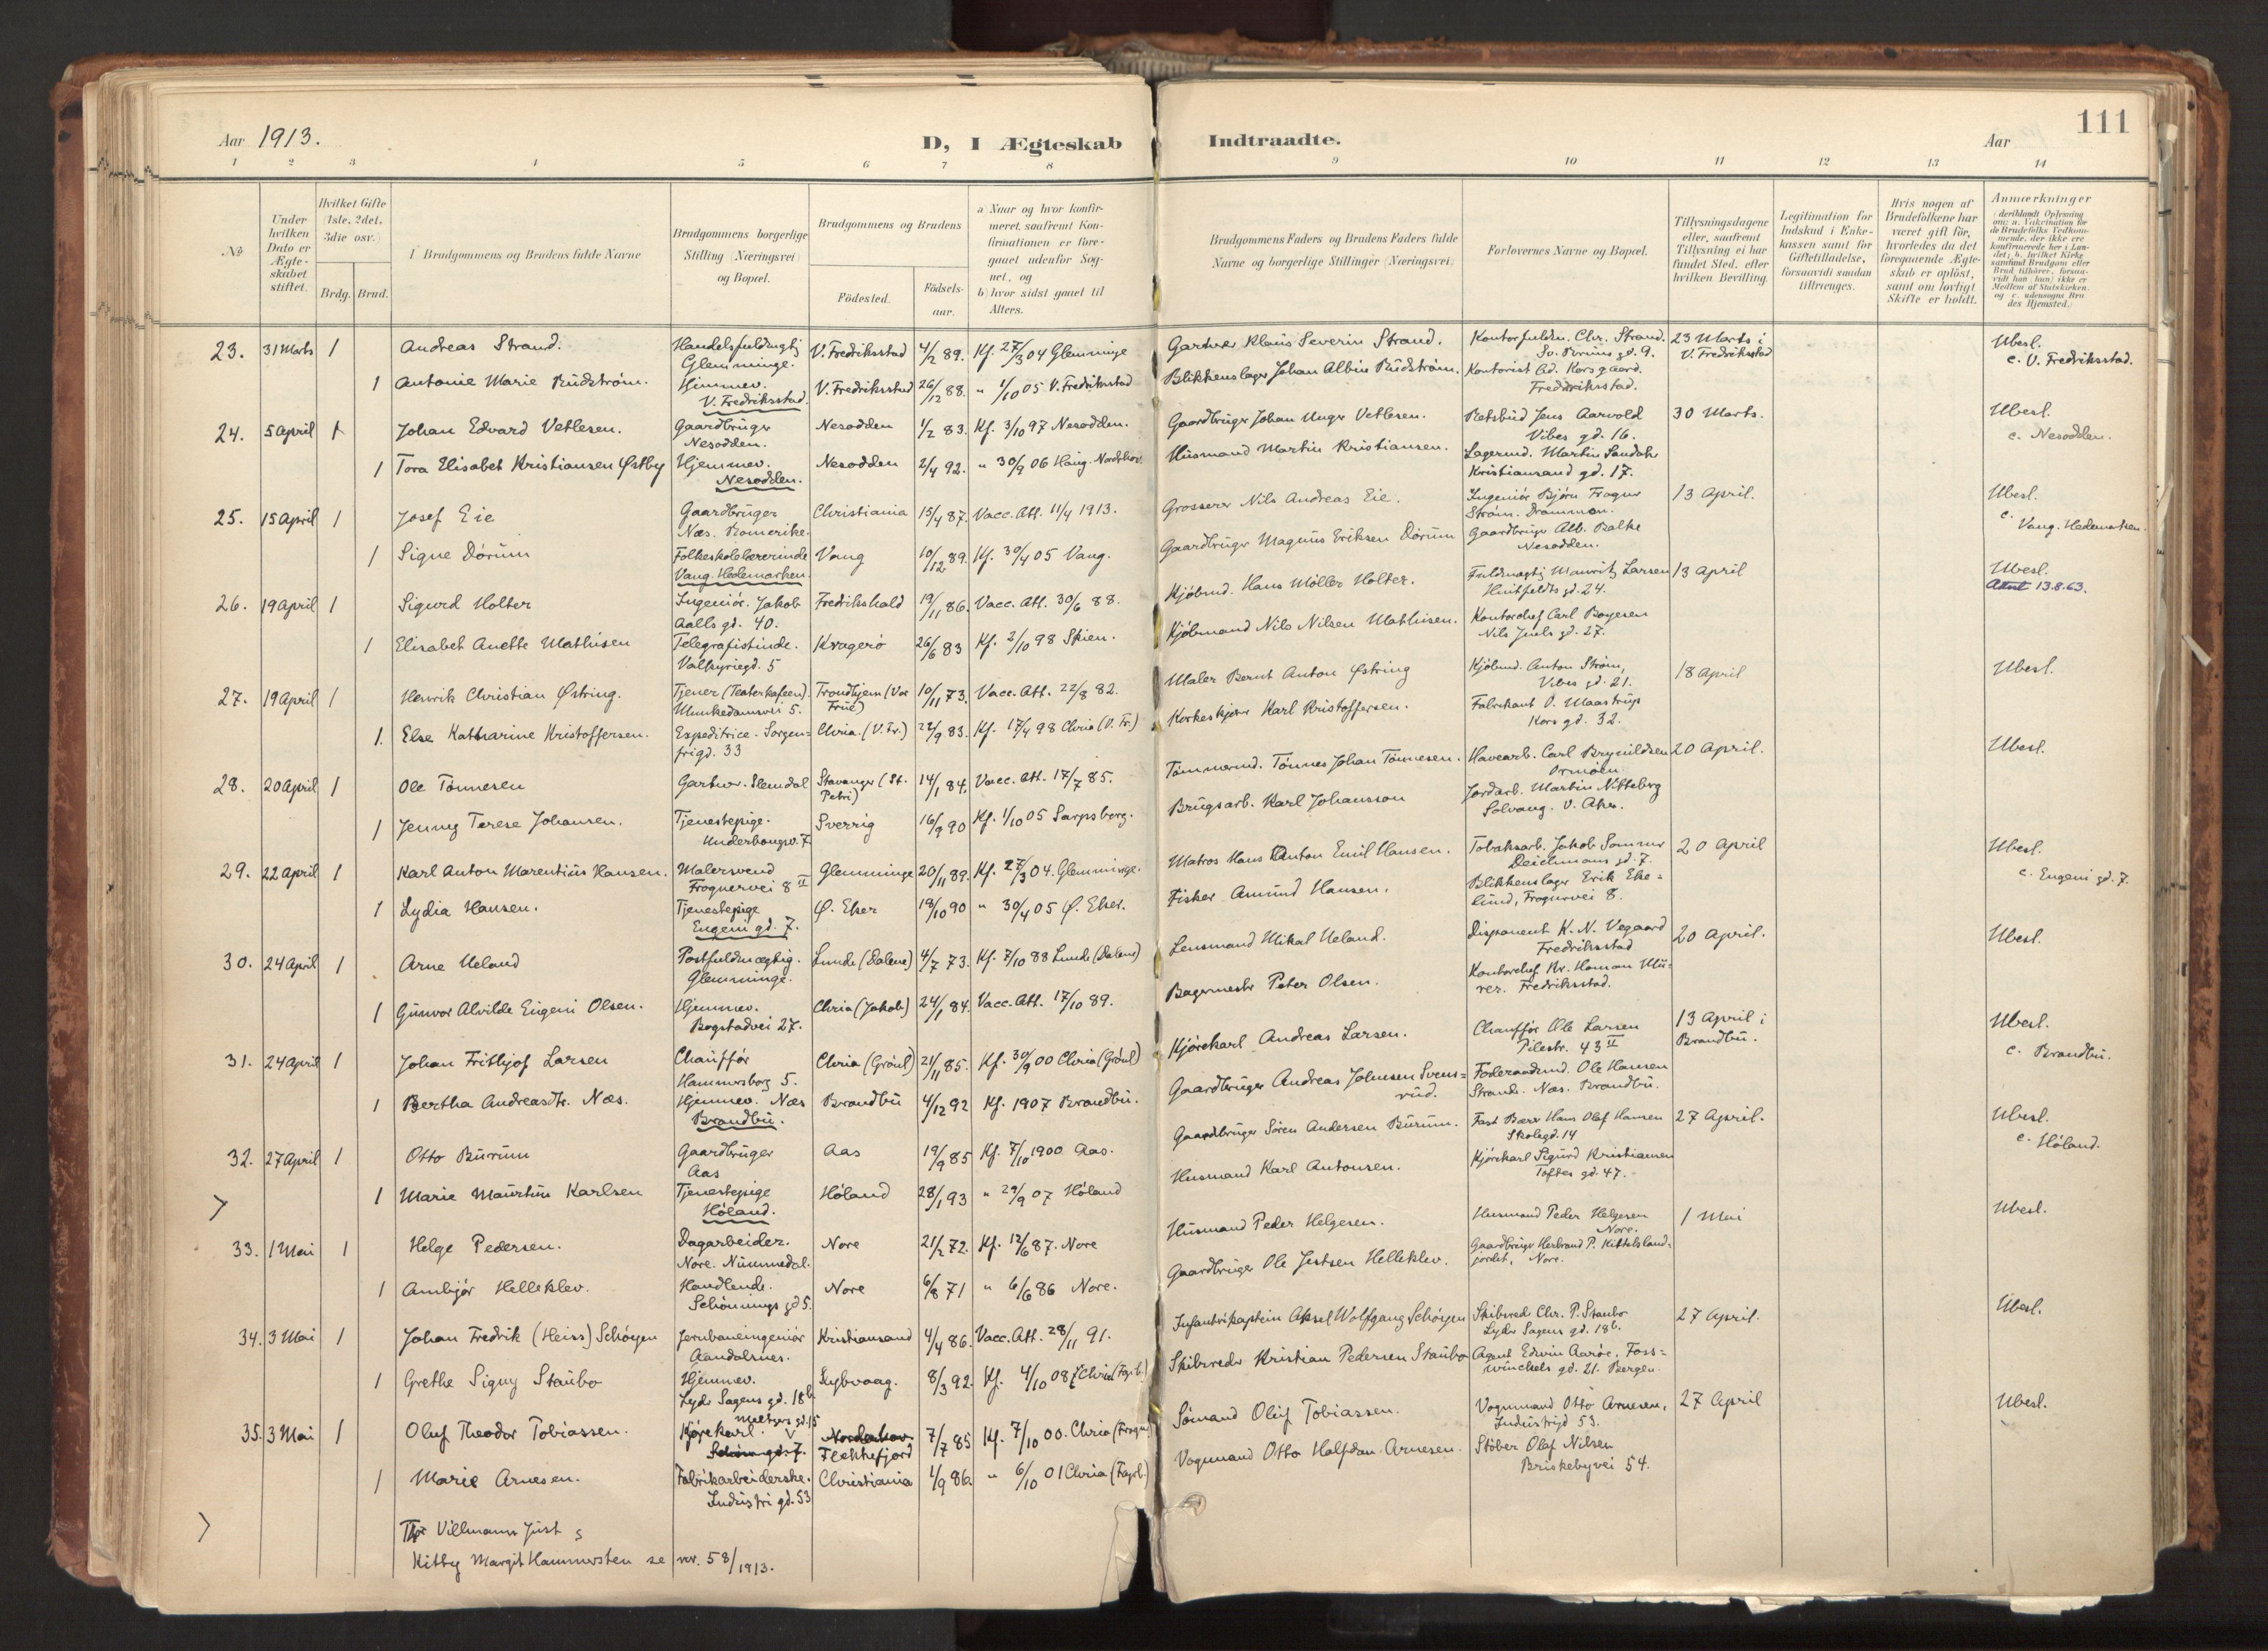 111
Aar 1913.
D, I Ægteskab Indtraadte.
Aar
1 2 3 4 5 6 7 8 9 10 11 12 13 14
No
Under hvilken Dato er Ægteskabet stiftet.
Hvilket Gifte (1ste, 2det, 3die osv.)
Brdg. Brud.
Brudgommens og Brudens fulde Navne
Brudgommens borgerlige Stilling (Næringsvei) og Bopæl.
Brudgommens og Brudens
Födested.
Födsels-aar.
a) Naar og hvor konfirmeret, saafremt Konfirmationen er foregaaet udenfor Sognet, og
b) hvor sidst gaaet til Alters.
Brudgommens Faders og Brudens Faders fulde Navne og borgerlige Stillinger (Næringsvei)
Forlovernes Navne og Bopæl.
Tillysningsdagene eller, saafremt Tillysning ei har fundet Sted, efter hvilken Bevilling.
Legitimation for Indskud i Enkekassen samt for Giftetilladelse, forsaavidt saadan tiltrænges.
Hvis nogen af Brudefolkene har været gift før, hvorledes da det foregaaende Ægteskab er oplöst, samt om lovligt Skifte er holdt.
Anmærkninger
(deriblandt Oplysning om: a. Vakcination for de Brudefolks Vedkommende, der ikke ere konfirmerede her i Landet; b. hvilket Kirkesamfund Brudgom eller Brud tilhörer, forsaavidt han (hun) ikke er Medlem af Statskirken, og c. udensogns Brudes Hjemsted.)
23. 31 Marts 1 Andreas Strand. Handelsfuldmægtig Glemminge. V. Fredriksstad 4/2 89. Kf. 27/3 04 Glemminge Gartner Klaus Severin Strand. Kontorfuldm. Chr. Strand. Sv. Bruns gd. 9. 23 Marts i V. Fredriksstad Ubesl. c. V. Fredriksstad.
1 Antonie Marie Rudstrøm. Hjemmev. V. Fredriksstad. V. Fredriksstad 26/12 88. " 1/10 05 V. Fredriksstad Blikkenslager Johan Albin Rudstrøm. Kontorist Ad. Korsgaard. Fredriksstad.
24. 5 April 1 Johan Edvard Vetlesen. Gaardbruger Nesodden. Nesodden 1/2 83. Kf. 3/10 97 Nesodden. Gaardbruger Johan Unger Vetlesen. Retsbud Jens Aarvold Vibes gd. 16. 30 Marts. Ubesl. c. Nesodden.
1 Tora Elisabet Kristiansen Østby Hjemmev. Nesodden. Nesodden 2/4 92. " 30/9 06 Haug. Nordehov. Husmand Martin Kristiansen. Lagermd. Martin Sandaker Kristiansand gd. 17.
25. 15 April 1 Josef Eie Gaardbruger Næs. Romerike. Christiania 15/4 87. Vacc. Att. 11/4 1913. Grosserer Nils Andreas Eie. Ingeniør Bjørn Frogner Strøm. Drammen. 13 April. Ubesl. c. Vang. Hedemarken.
1 Signe Dørum Folkeskolelærerinde Vang. Hedemarken. Vang 10/12 89. Kf. 30/4 05 Vang. Gaardbruger Magnus Eriksen Dørum Gaardbruger Alb. Balke Nesodden.
26. 19 April 1 Sigurd Holter Ingeniør. Jakob Aalls gd. 40. Fredrikshald 19/11 86. Vacc. Att. 30/6 88. Kjøbmd. Hans Møller Holter. Fuldmægtig Mauritz Larsen Huitfeldts gd. 24. 13 April Ubesl. Attest 13.8.63.
1 Elisabet Anette Mathisen Telegrafistinde. Valkyriegd. 5 Kragerø 26/6 83 Kf. 2/10 98 Skien. Kjøbmand Nils Nilsen Mathisen. Kontorchef Carl Boyesen Nils Juels gd. 27.
27. 19 April 1 Henrik Christian Østring. Tjener (Teaterkafeen). Munkedamsvei 5. Trondhjem (Vor Frue) 10/11 73. Vacc. Att. 22/8 82. Maler Bernt Anton Østring Kjøbmd. Anton Strøm, Vibes gd. 21. 18 April Ubesl.
1. Else Katharine Kristoffersen. Expeditrice. Sorgenfrigd. 33 Chria. (V. Fr.) 22/9 83. Kf. 17/4 98 Chria (V. Fr.) Korkeskjærer Karl Kristoffersen. Fabrikant O. Maastrup Kors gd. 32.
28. 20 April 1 Ole Tønnesen Gartner. Slemdal Stavanger (St. Petri) 14/1 84. Vacc. Att. 17/7 85. Tømmermd. Tønnes Johan Tønnesen. Havearb. Carl Brynildsen Ormøen 20 April. Ubesl.
1 Jenny Terese Johansen. Tjenestepige. Underhaugsv. 7 Sverrig 16/9 90 Kf. 1/10 05 Sarpsborg. Brugsarb. Karl Johansson Jordarb. Martin Nitteberg Solvang. V. Aker.
29. 22 April 1 Karl Anton Marentius Hansen. Malersvend Frognervei 8 II Glemminge 20/11 89. Kf. 27/3 04. Glemminge. Matros Hans Anton Emil Hansen. Tobaksarb. Jakob Sommer Deichmans gd. 7. 20 April Ubesl. c. Eugeni gd. 7.
1 Lydia Hansen. Tjenestepige Eugeni gd. 7. Ø. Eker 19/10 90 " 30/4 05 Ø. Eker. Fisker Amund Hansen. Blikkenslager Erik Ekelund, Frognervei 8.
30. 24 April 1 Arne Ueland Postfuldmægtig. Glemminge. Lunde (Dalene) 4/7 73. Kf. 7/10 88 Lunde (Dalene) Lensmand Mikal Ueland. Disponent K. N. Vegaard Fredriksstad 20 April. Ubesl.
1 Gunvor Alvilde Eugeni Olsen. Hjemmev. Bogstadvei 27. Chria (Jakob) 24/1 84. Vacc. Att. 17/10 89. Bagermester Peter Olsen. Kontorchef Kr. Homan Mürer. Fredriksstad.
31. 24 April 1 Johan Frithjof Larsen Chauffør Hammersborg 5. Chria (Grønl) 21/11 85. Kf. 30/9 00 Chria (Grønl) Kjørekarl Andreas Larsen. Chauffør Ole Larsen Pilestr. 43 II 13 April i Brandbu. Ubesl. c. Brandbu.
1 Bertha Andreasdtr. Næs. Hjemmev. Næs Brandbu. Brandbu 4/12 92 Kf. 1907 Brandbu. Gaardbruger Andreas Johnsen Svensrud. Føderaadsmd. Ole Hansen Strande. Næs. Brandbu.
32. 27 April 1 Otto Burum Gaardbruger Aas Aas 19/9 85 Kf. 7/10 1900 Aas. Gaardbruger Søren Andersen Burum. Fast Bærer Hans Olaf Hansen Skolegd. 14 27 April. Ubesl. c. Høland.
1 Marie Maurtine Karlsen Tjenestepige Høland. Høland 28/1 93 " 29/9 07 Høland Husmand Karl Antonsen. Kjørekarl Sigurd Kristiansen Toftes gd. 47.
33. 1 Mai 1 Helge Pedersen. Dagarbeider. Nore. Nummedal. Nore 21/2 72. Kf. 12/6 87. Nore Husmand Peder Helgesen. Husmand Peder Helgesen Nore. 1 Mai Ubesl.
1 Ambjør Helleklev. Handlende. Schønnings gd 5. Nore 6/8 71 " 6/6 86 Nore. Gaardbruger Ole Jestsen Helleklev. Gaardbruger Herbrand P. Kittelslandjordet, Nore.
34. 3 Mai 1 Johan Fredrik (Heiss) Schøyen Jernbaneingeniør Aandalsnes. Kristiansand 4/4 86. Vacc. Att. 28/11 91. Infanterikaptein Aksel Wolfgang Schøyen Skibsred. Chr. P. Staubo Lyder Sagens gd. 18b. 27 April. Ubesl.
1 Grethe Signy Staubo Hjemmev. Lyder Sagens gd. 18b Lybvaag. 8/3 92. Kf. 4/10 08 Chria (Fagerb.) Skibsreder Kristian Pedersen Staubo Agent Edwin Aarøe. Fosswinckels gd. 21. Bergen.
35. 3 Mai 1 Oluf Theodor Tobiassen. Kjørekarl. Meltzers gd. 15 Nordenhov Flekkefjord 7/7 85 Kf. 7/10 00. Chria (Frogner) Sømand Oluf Tobiassen. Vognmand Otto Arnesen, Industrigd 53. 27 April Ubesl.
1 Marie Arnesen. Fabrikarbeiderske. Industri gd. 53 Christiania 1/9 86. " 6/10 01 Chria (Fagerb.) Vognmand Otto Halfdan Arnesen. Støber Olaf Nilsen Briskebyvei 54.
Thor Villmann Just &
Kitty Margit Hammersten se nr. 58/1913.